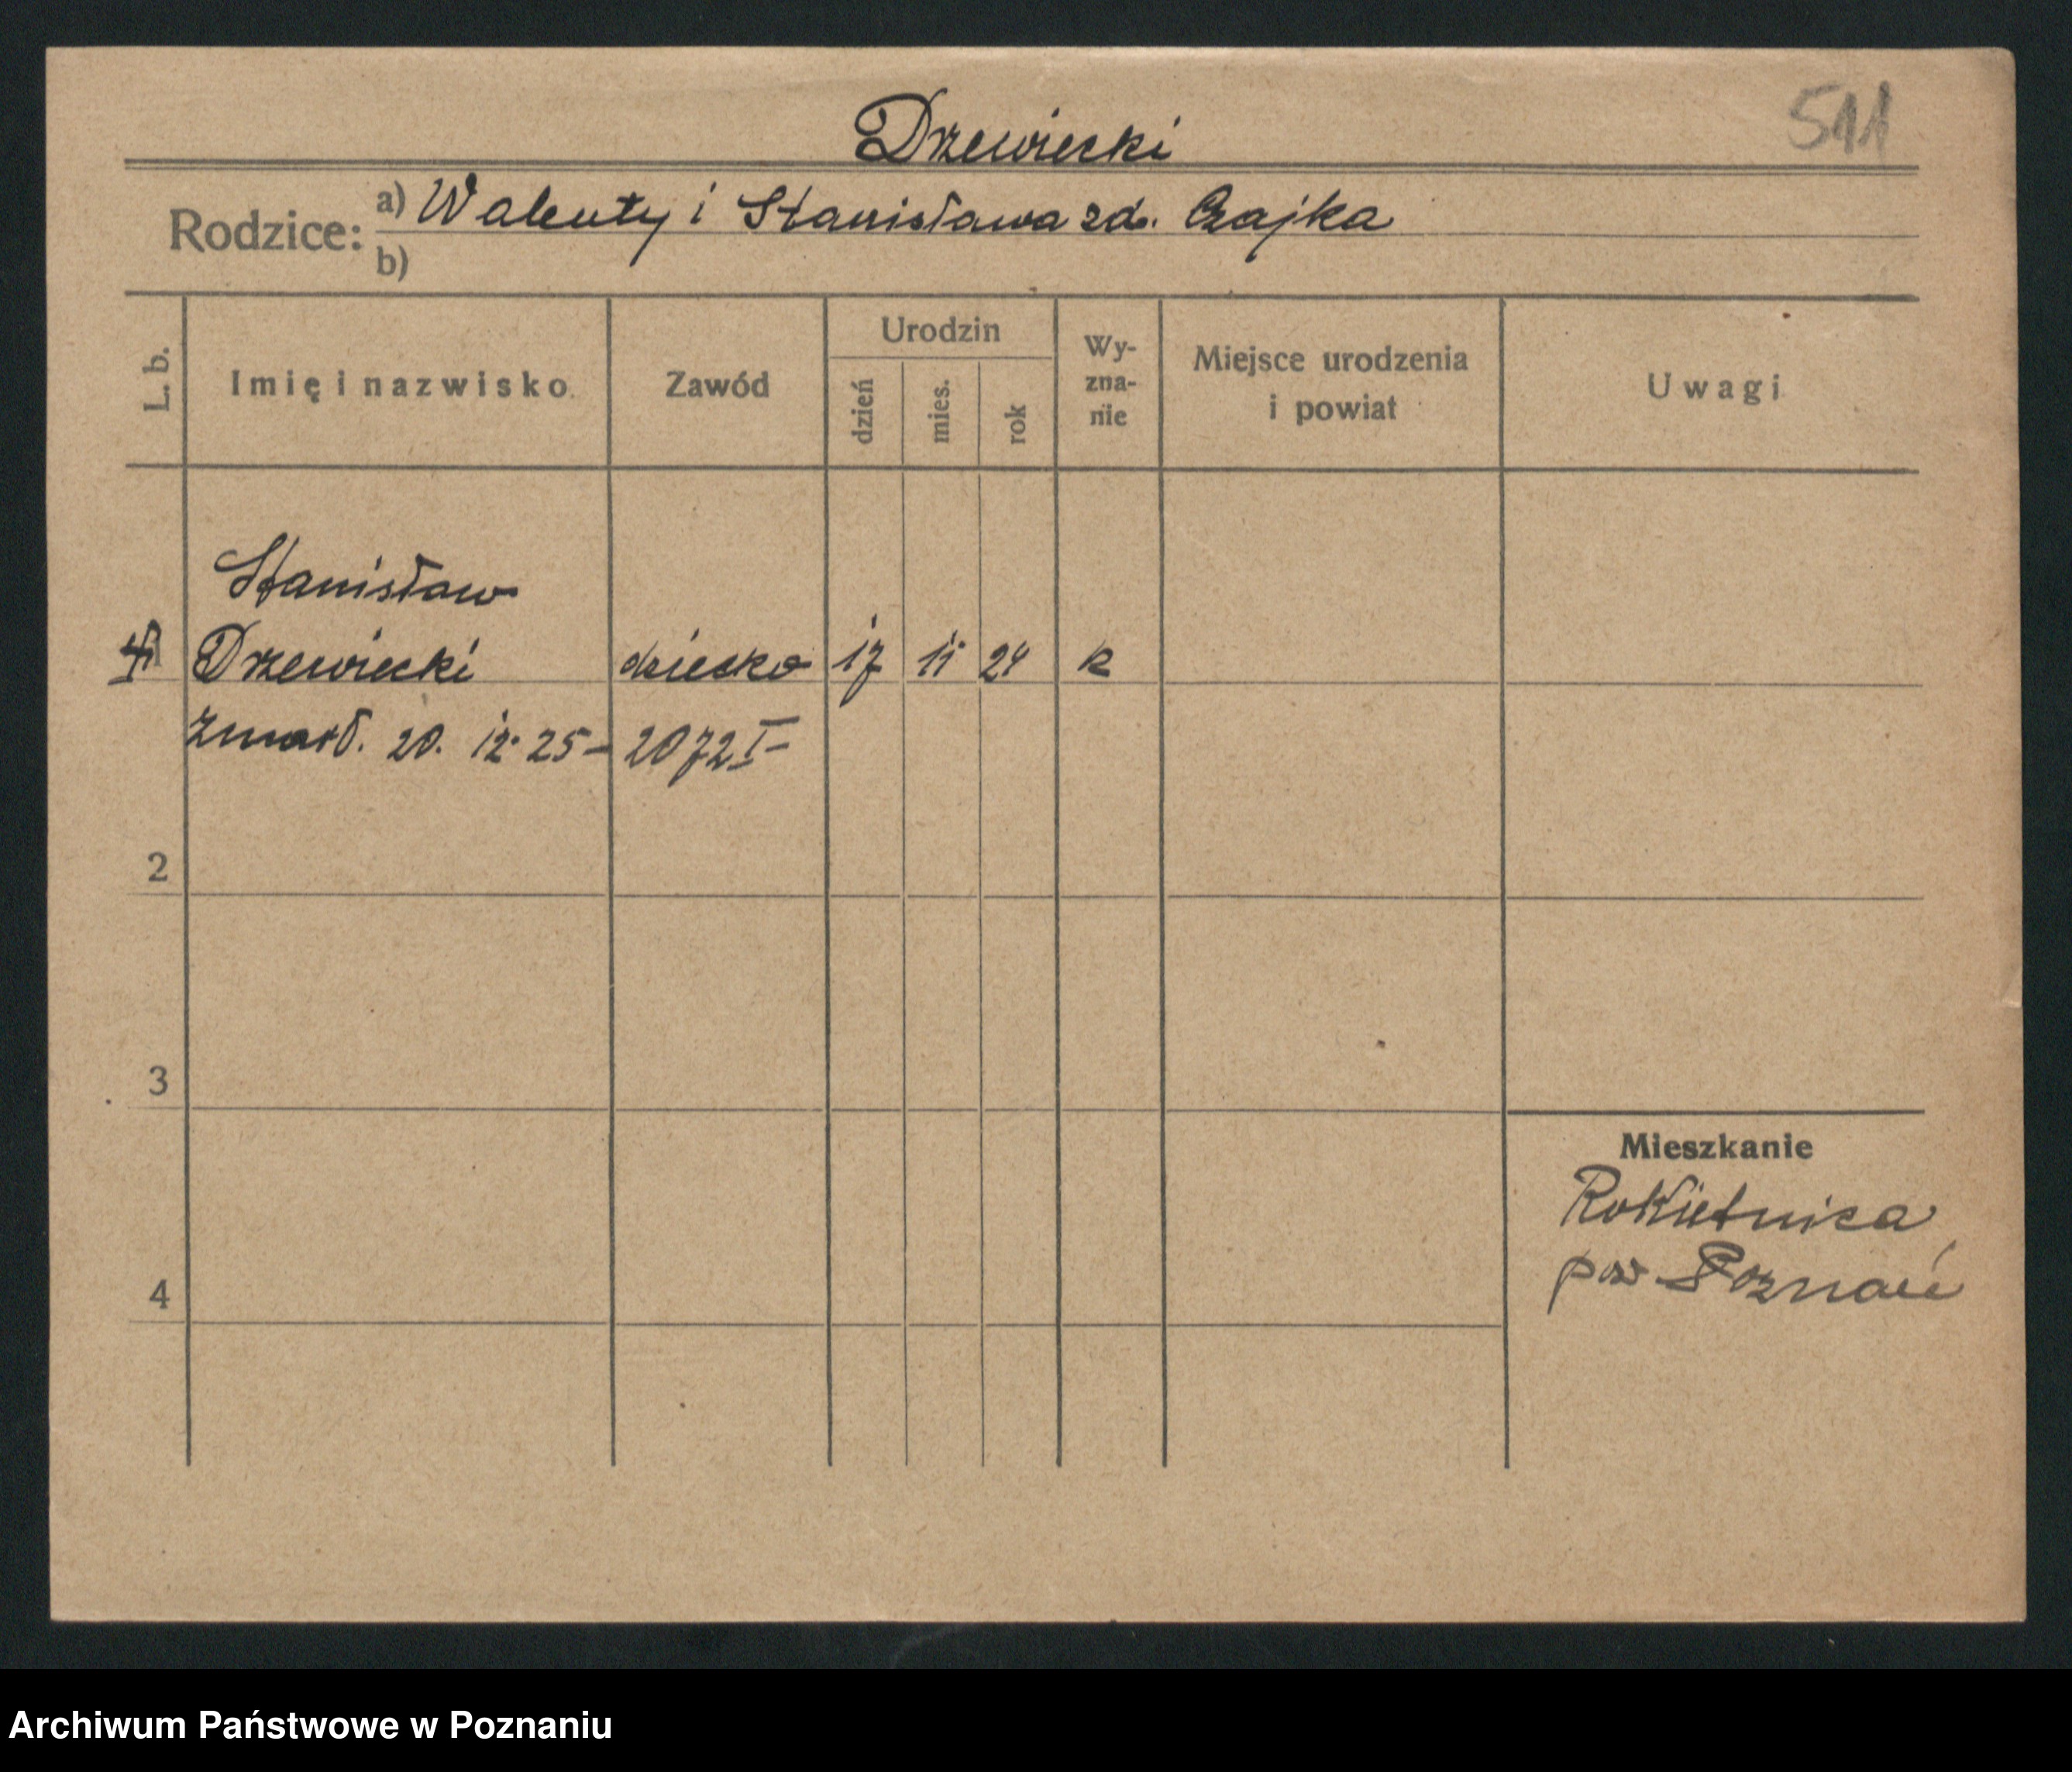 511
Drzewiecki
Rodzice: a) Walenty i Stanisława zd. Czajka
b)
L. b.
Imię i nazwisko
Zawód
Urodzin
dzień
mies.
rok
Wy-
zna-
nie
Miejsce urodzenia
i powiat
Uwagi
Stanisław
Drzewiecki dziecko 17 11 24 k
zmarł. 20. 12. 25 – 2072 I –
2
3
4
Mieszkanie
Rokietnica
pow Poznań
Archiwum Państwowe w Poznaniu